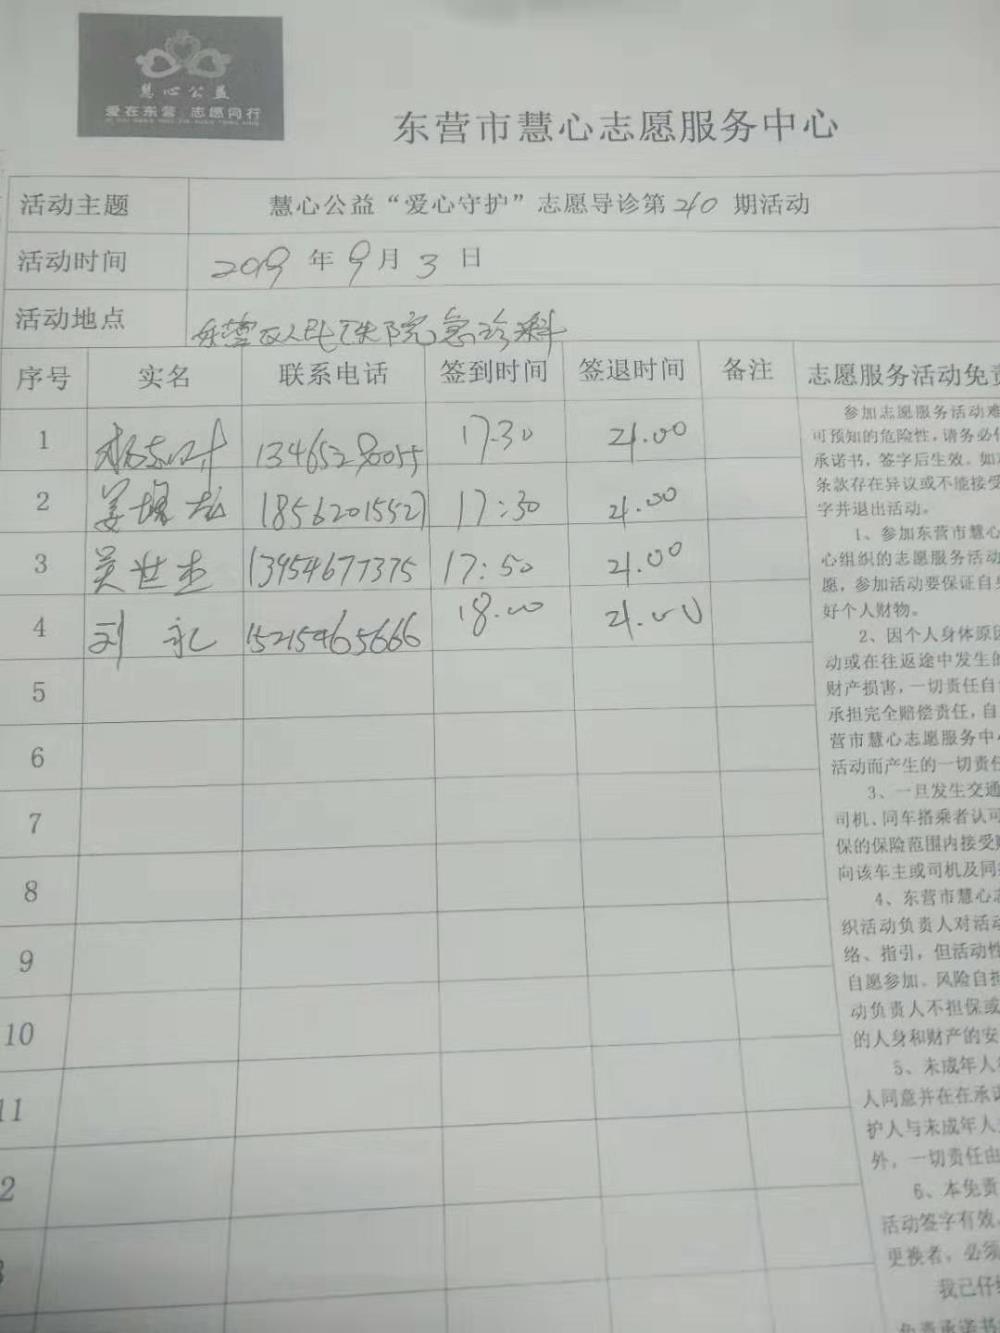 慧心公益
爱在东营 志愿同行
东营市慧心志愿服务中心
活动主题 慧心公益“爱心守护”志愿导诊第210期活动
活动时间 2019年9月3日
活动地点 东营区人民医院急诊科
序号 实名 联系电话 签到时间 签退时间 备注 志愿服务活动免责
1 17.30 21.00
2 18562015527 17:30 21.00
3 吴世杰 13954677375 17:50 21.00
4 刘礼 15215465666 18.00 21.00
5
6
7
8
9
10
11
2
3
参加志愿服务活动难
可预知的危险性，请务必仔
承诺书，签字后生效。如
条款存在异议或不能接受
字并退出活动。
1、参加东营市慧心
心组织的志愿服务活动
愿，参加活动要保证自身
好个人财物。
2、因个人身体原因
动或在往返途中发生的
财产损害，一切责任自
承担完全赔偿责任，自
营市慧心志愿服务中心
活动而产生的一切责任
3、一旦发生交通
司机、同车搭乘者认可
保的保险范围内接受
向该车主或司机及同
4、东营市慧心志
织活动负责人对活动
络、指引，但活动性
自愿参加、风险自担
动负责人不担保或
的人身和财产的安
5、未成年人
人同意并在在承诺
护人与未成年人
外，一切责任由
6、本免责
活动签字有效，
更换者，必须
我已仔细
免责承诺书